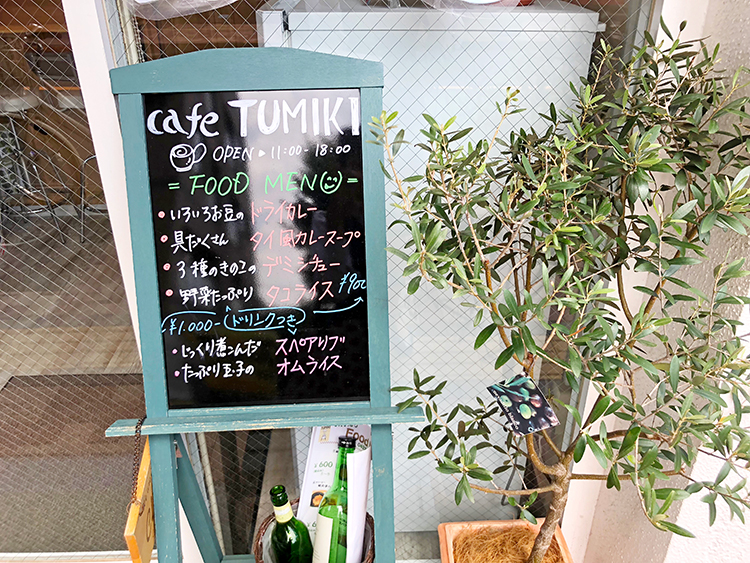 cafe TUMIKI
OPEN ▸ 11:00 - 18:00
= FOOD MENU =
• いろいろお豆の ドライカレー
• 具だくさん タイ風カレースープ
• 3種のきのこの デミシチュー
• 野菜たっぷり タコライス ¥900
¥1.000- ドリンクつき
• じっくり煮こんだ スペアリブ
• たっぷり玉子の オムライス
Food
¥600